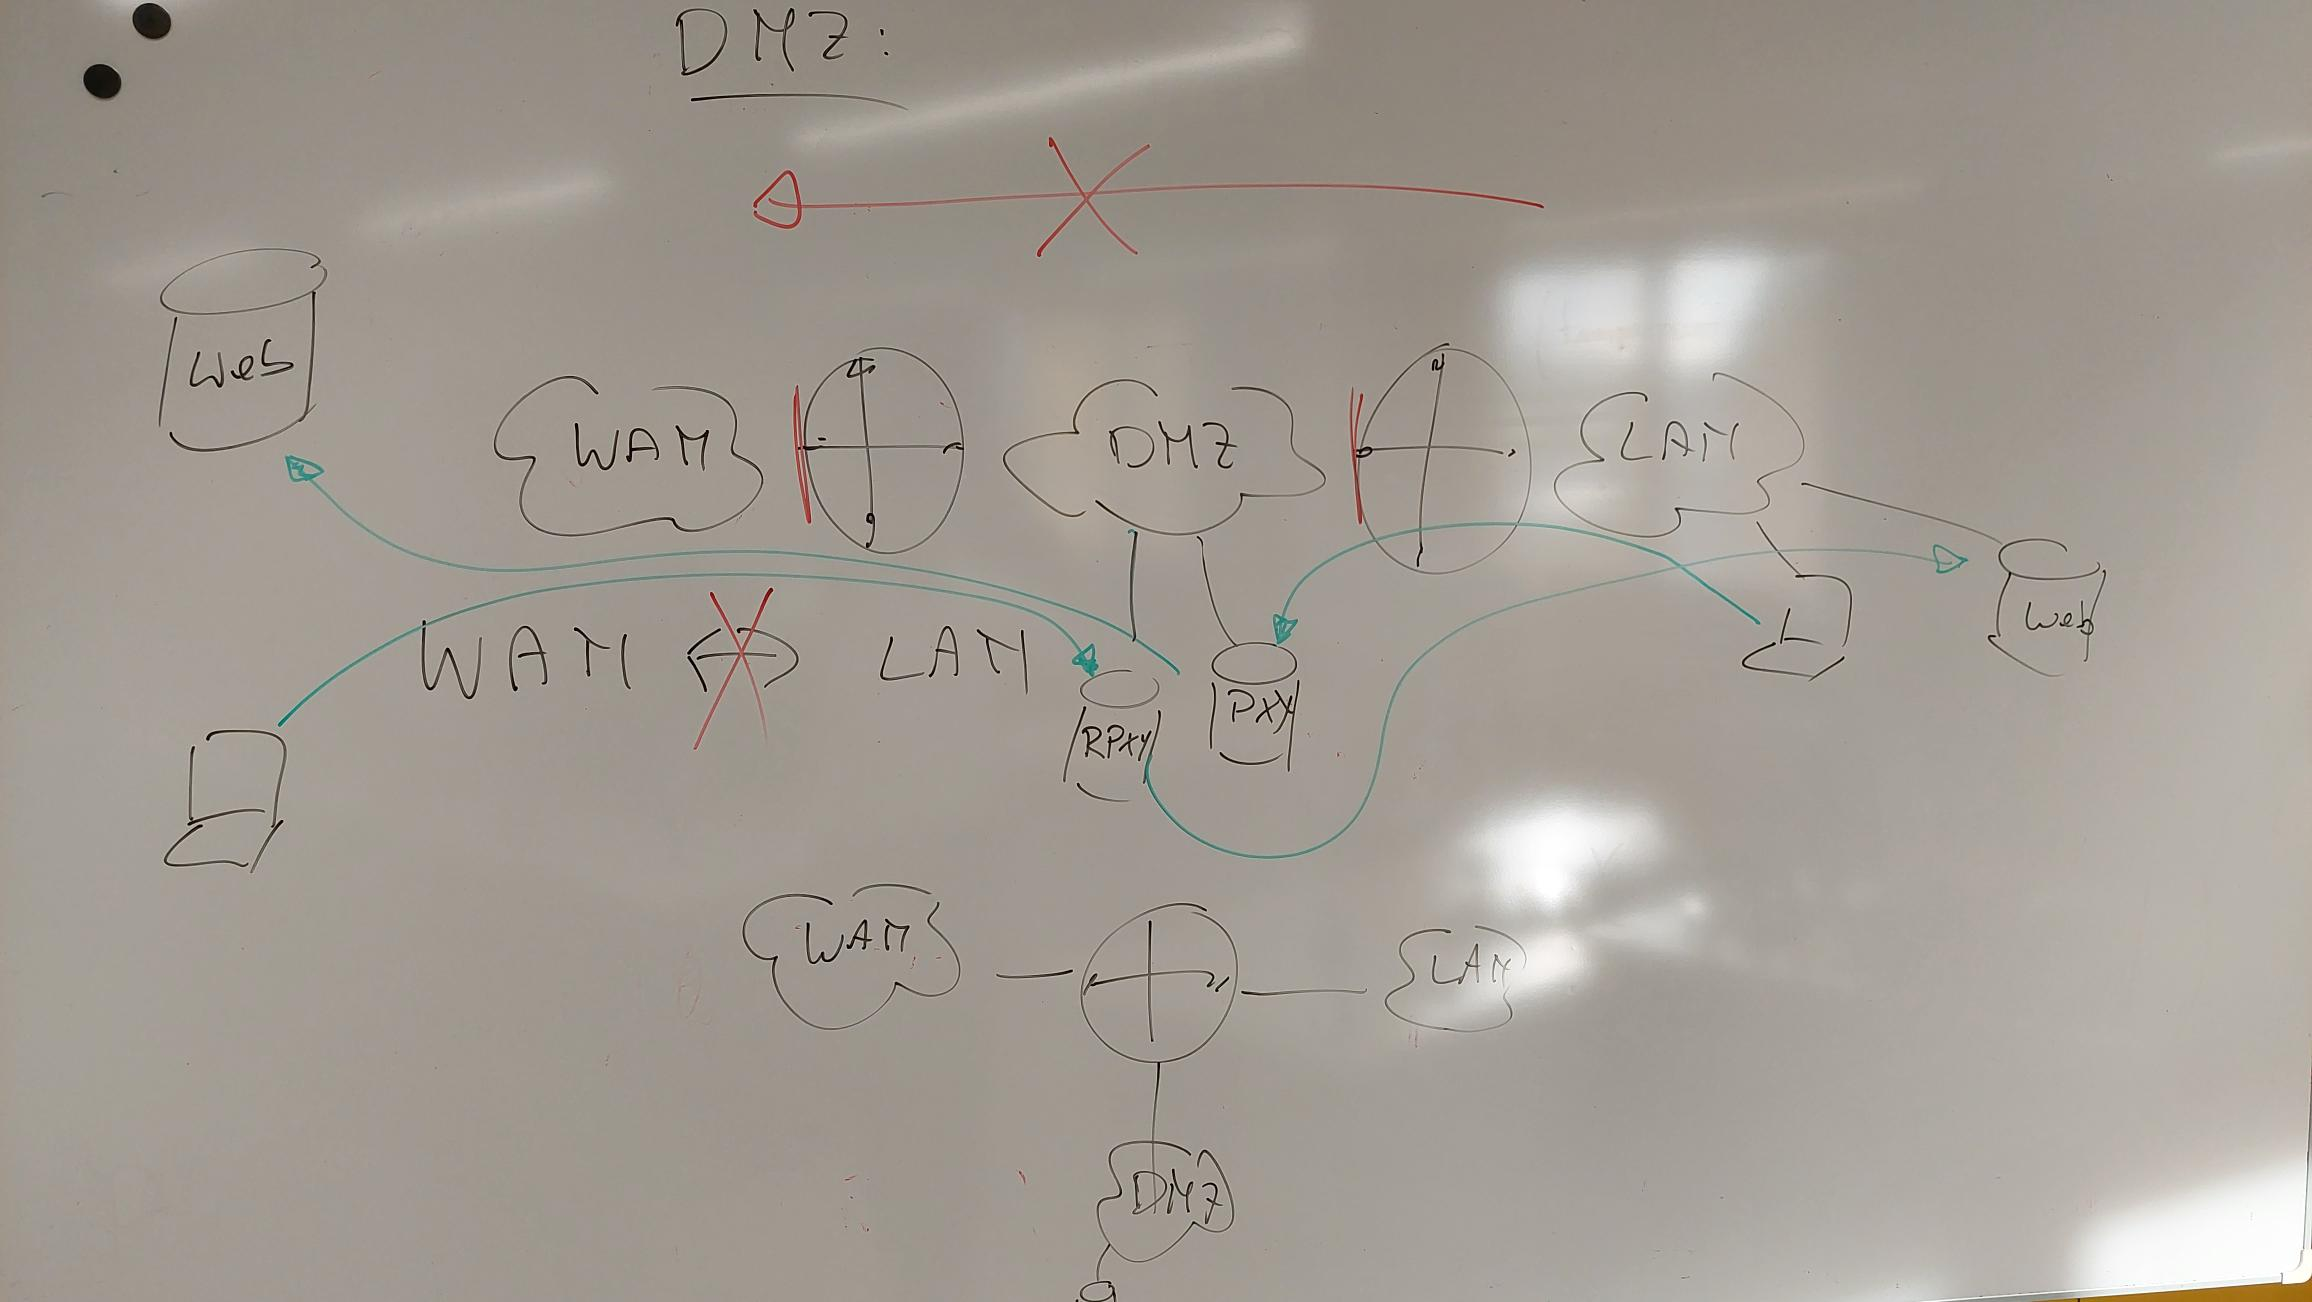 DMZ:
Web
WAN
DMZ
LAN
WAN LAN
RPxy
Pxy
Web
WAN
LAN
DMZ